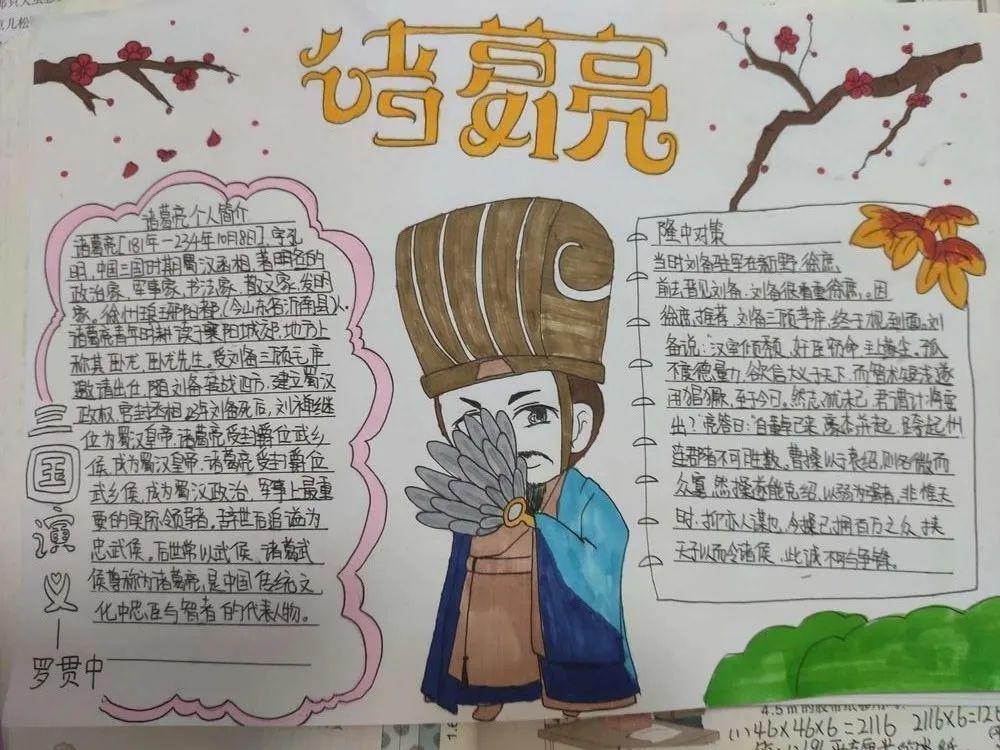 诸葛亮
诸葛亮个人简介
诸葛亮[181年-234年10月8日],字孔
明,中国三国时期蜀汉丞相,著明名的
政治家、军事家、书法家、散文家、发明
家。徐州琅琊阳都(今山东省沂南县)人
诸葛亮青年时耕读于襄阳城郊,地方上
称其卧龙、卧龙先生。受刘备三顾茅庐
邀请出仕,随刘备转战四方,建立蜀汉
政权,官封丞相,223年刘备死后,刘禅继
位为蜀汉皇帝,诸葛亮受封爵位武乡
侯,成为蜀汉皇帝,诸葛亮受封爵位
武乡侯,成为蜀汉政治、军事上最重
要的实际领导者,辞世后追谥为
忠武侯。后世常以武侯、诸葛武
侯尊称为诸葛亮,是中国传统文
化中忠臣与智者的代表人物。
三国演义
罗贯中
隆中对策
当时刘备驻军在新野,徐庶
前去昔见刘备,刘备很看重徐庶。因
徐庶推荐,刘备三顾茅庐,终于见到面。刘
备说:汉室倾颓,奸臣窃命,主上蒙尘。孤
不度德量力,欲信大义于天下,而智术短浅,遂
用猖獗,至于今日。然志犹未已,君谓计将安
出?亮答曰:自董卓已来,豪杰并起,跨州
连郡者不可胜数。曹操以于袁绍,则名微而
众寡,然操遂能克绍,以弱为强者,非惟天
时,抑亦人谋也,今操已拥百万之众,挟
天子以而令诸侯,此诚不可与争锋。
46×46×6=2116
2116×6=126